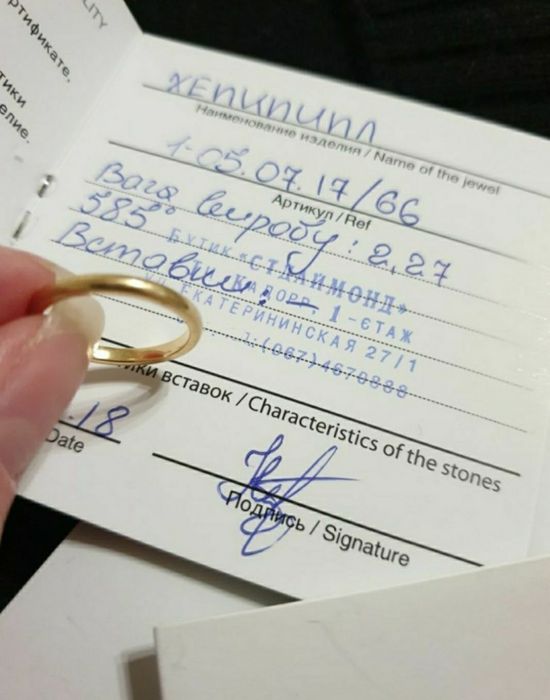 LITY
ртификате.
тики
елие.
ХЕПИПИПЛ
Наименование изделия / Name of the jewel
1-05.07.17/66
Артикул / Ref
Вага виробу: 2,27
585°
Бутик «СТАЙМОНД»
Вставки: –
1-ЄТАЖ
УЛ. ЕКАТЕРИНИНСКАЯ 27/1
т.(067)4670888
тики вставок / Characteristics of the stones
.18
Date
Подпись / Signature